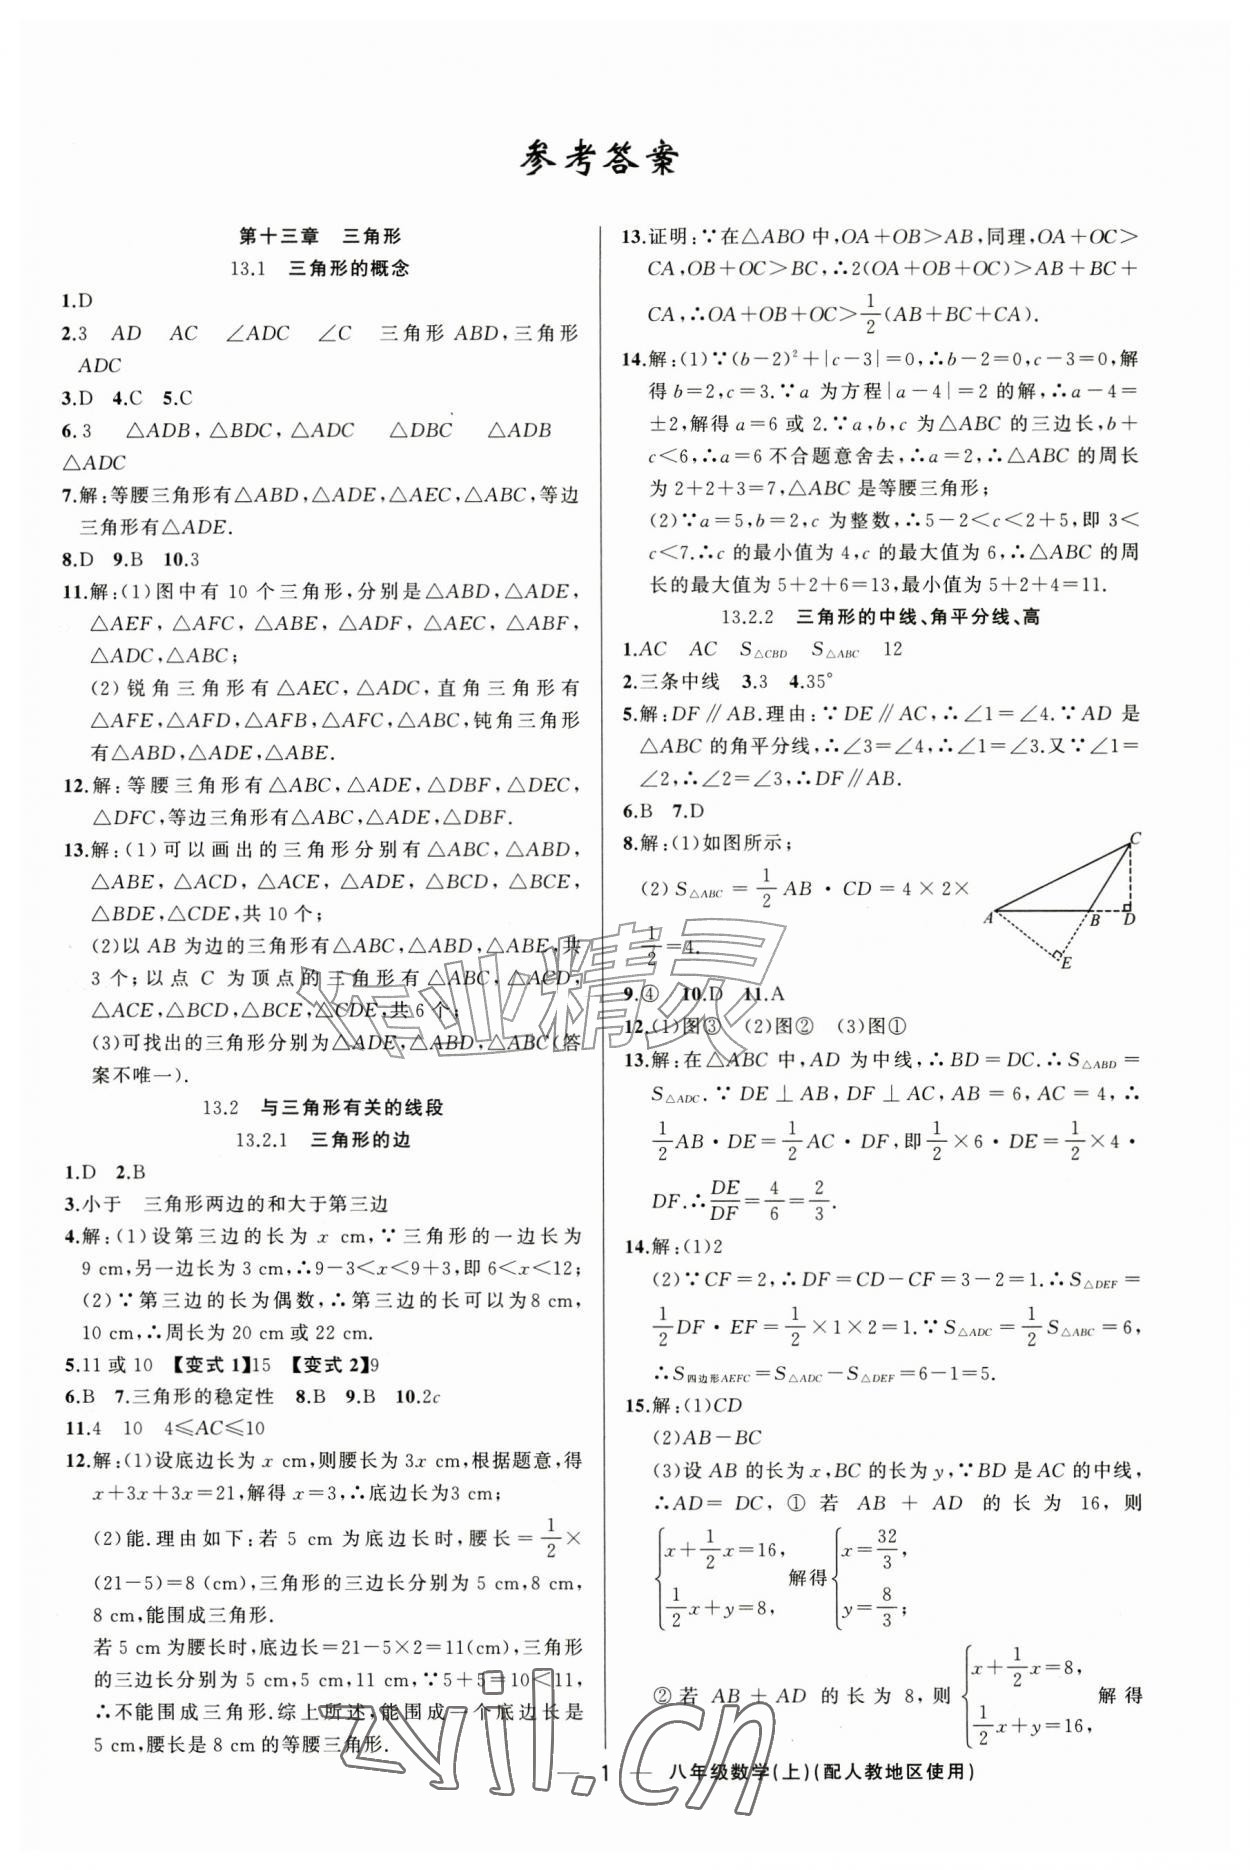 参考答案
第十三章 三角形
13.1 三角形的概念
1.D
2.3 AD AC ∠ADC ∠C 三角形 ABD,三角形
ADC
3.D 4.C 5.C
6.3 △ADB,△BDC,△ADC △DBC △ADB
△ADC
7.解:等腰三角形有△ABD,△ADE,△AEC,△ABC,等边
三角形有△ADE.
8.D 9.B 10.3
11.解:(1)图中有 10 个三角形,分别是△ABD,△ADE,
△AEF,△AFC,△ABE,△ADF,△AEC,△ABF,
△ADC,△ABC;
(2)锐角三角形有△AEC,△ADC,直角三角形有
△AFE,△AFD,△AFB,△AFC,△ABC,钝角三角形
有△ABD,△ADE,△ABE.
12.解:等腰三角形有△ABC,△ADE,△DBF,△DEC,
△DFC,等边三角形有△ABC,△ADE,△DBF.
13.解:(1)可以画出的三角形分别有△ABC,△ABD,
△ABE,△ACD,△ACE,△ADE,△BCD,△BCE,
△BDE,△CDE,共 10 个;
(2)以 AB 为边的三角形有△ABC,△ABD,△ABE,共
3 个;以点 C 为顶点的三角形有△ABC,△ACD,
△ACE,△BCD,△BCE,△CDE,共 6 个;
(3)可找出的三角形分别为△ADE,△ABD,△ABC(答
案不唯一).
13.2 与三角形有关的线段
13.2.1 三角形的边
1.D 2.B
3.小于 三角形两边的和大于第三边
4.解:(1)设第三边的长为 x cm,∵三角形的一边长为
9 cm,另一边长为 3 cm,∴9-3<x<9+3,即 6<x<12;
(2)∵第三边的长为偶数,∴第三边的长可以为8 cm,
10 cm,∴周长为 20 cm 或 22 cm.
5.11 或 10 【变式 1】15 【变式 2】9
6.B 7.三角形的稳定性 8.B 9.B 10.2c
11.4 10 4≤AC≤10
12.解:(1)设底边长为 x cm,则腰长为 3x cm,根据题意,得
x+3x+3x=21,解得 x=3,∴底边长为3 cm;
(2)能.理由如下:若 5 cm 为底边长时,腰长=1/2×
(21-5)=8 (cm),三角形的三边长分别为 5 cm,8 cm,
8 cm,能围成三角形.
若 5 cm 为腰长时,底边长=21-5×2=11(cm),三角形
的三边长分别为 5 cm,5 cm,11 cm,∵5+5=10<11,
∴不能围成三角形.综上所述,能围成一个底边长是
5 cm,腰长是 8 cm 的等腰三角形.
13.证明:∵在△ABO 中,OA+OB>AB,同理,OA+OC>
CA,OB+OC>BC,∴2(OA+OB+OC)>AB+BC+
CA,∴OA+OB+OC>1/2(AB+BC+CA).
14.解:(1)∵(b-2)²+|c-3|=0,∴b-2=0,c-3=0,解
得 b=2,c=3.∵a 为方程|a-4|=2 的解,∴a-4=
±2,解得 a=6 或 2.∵a,b,c 为△ABC 的三边长,b+
c<6,∴a=6 不合题意舍去,∴a=2,∴△ABC 的周长
为 2+2+3=7,△ABC 是等腰三角形;
(2)∵a=5,b=2,c 为整数,∴5-2<c<2+5,即 3<
c<7.∴c 的最小值为 4,c 的最大值为 6,∴△ABC 的周
长的最大值为 5+2+6=13,最小值为 5+2+4=11.
13.2.2 三角形的中线、角平分线、高
1.AC AC S△CBD S△ABC 12
2.三条中线 3.3 4.35°
5.解:DF∥AB.理由:∵DE∥AC,∴∠1=∠4.∵AD 是
△ABC 的角平分线,∴∠3=∠4,∴∠1=∠3.又∵∠1=
∠2,∴∠2=∠3,∴DF∥AB.
6.B 7.D
8.解:(1)如图所示;
(2) S△ABC=1/2 AB·CD=4×2×
1/2=4.
A B C D E
9.④ 10.D 11.A
12.(1)图③ (2)图② (3)图①
13.解:在△ABC 中,AD 为中线,∴BD=DC.∴S△ABD=
S△ADC.∵DE⊥AB,DF⊥AC,AB=6,AC=4,∴
1/2 AB·DE=1/2 AC·DF,即 1/2×6·DE=1/2×4·
DF.∴DE/DF=4/6=2/3.
14.解:(1)2
(2)∵CF=2,∴DF=CD-CF=3-2=1.∴S△DEF=
1/2 DF·EF=1/2×1×2=1.∵S△ADC=1/2 S△ABC=6,
∴S四边形AEFC=S△ADC-S△DEF=6-1=5.
15.解:(1)CD
(2)AB-BC
(3)设 AB 的长为 x,BC 的长为 y,∵BD 是 AC 的中线,
∴AD=DC,①若 AB+AD 的长为 16,则
{x+1/2x=16, 1/2x+y=8, 解得 {x=32/3, y=8/3;
②若 AB+AD 的长为 8,则 {x+1/2x=8, 1/2x+y=16, 解得
— 1 — 八年级数学(上)(配人教地区使用)
作业精灵
zyjl.cn